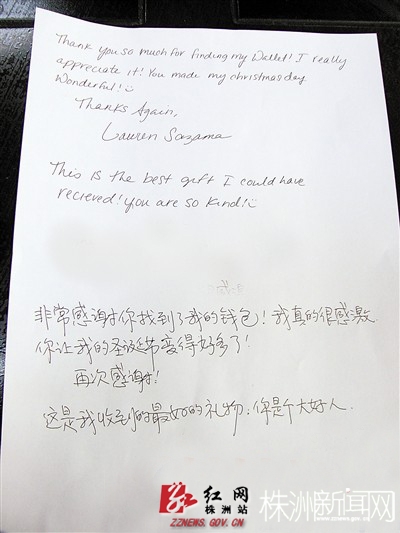 Thank you so much for finding my Wallet! I really
appreciate it! You made my christmas day
Wonderful!
Thanks Again,
Lauren Sazama
This is the best gift I could have
recieved! You are so kind!
非常感谢你找到了我的钱包！我真的很感激.
你让我的圣诞节变得好多了！
再次感谢！
这是我收到的最好的礼物.你是个大好人.
红网
株洲站
ZZNEWS.GOV.CN
株洲新闻网